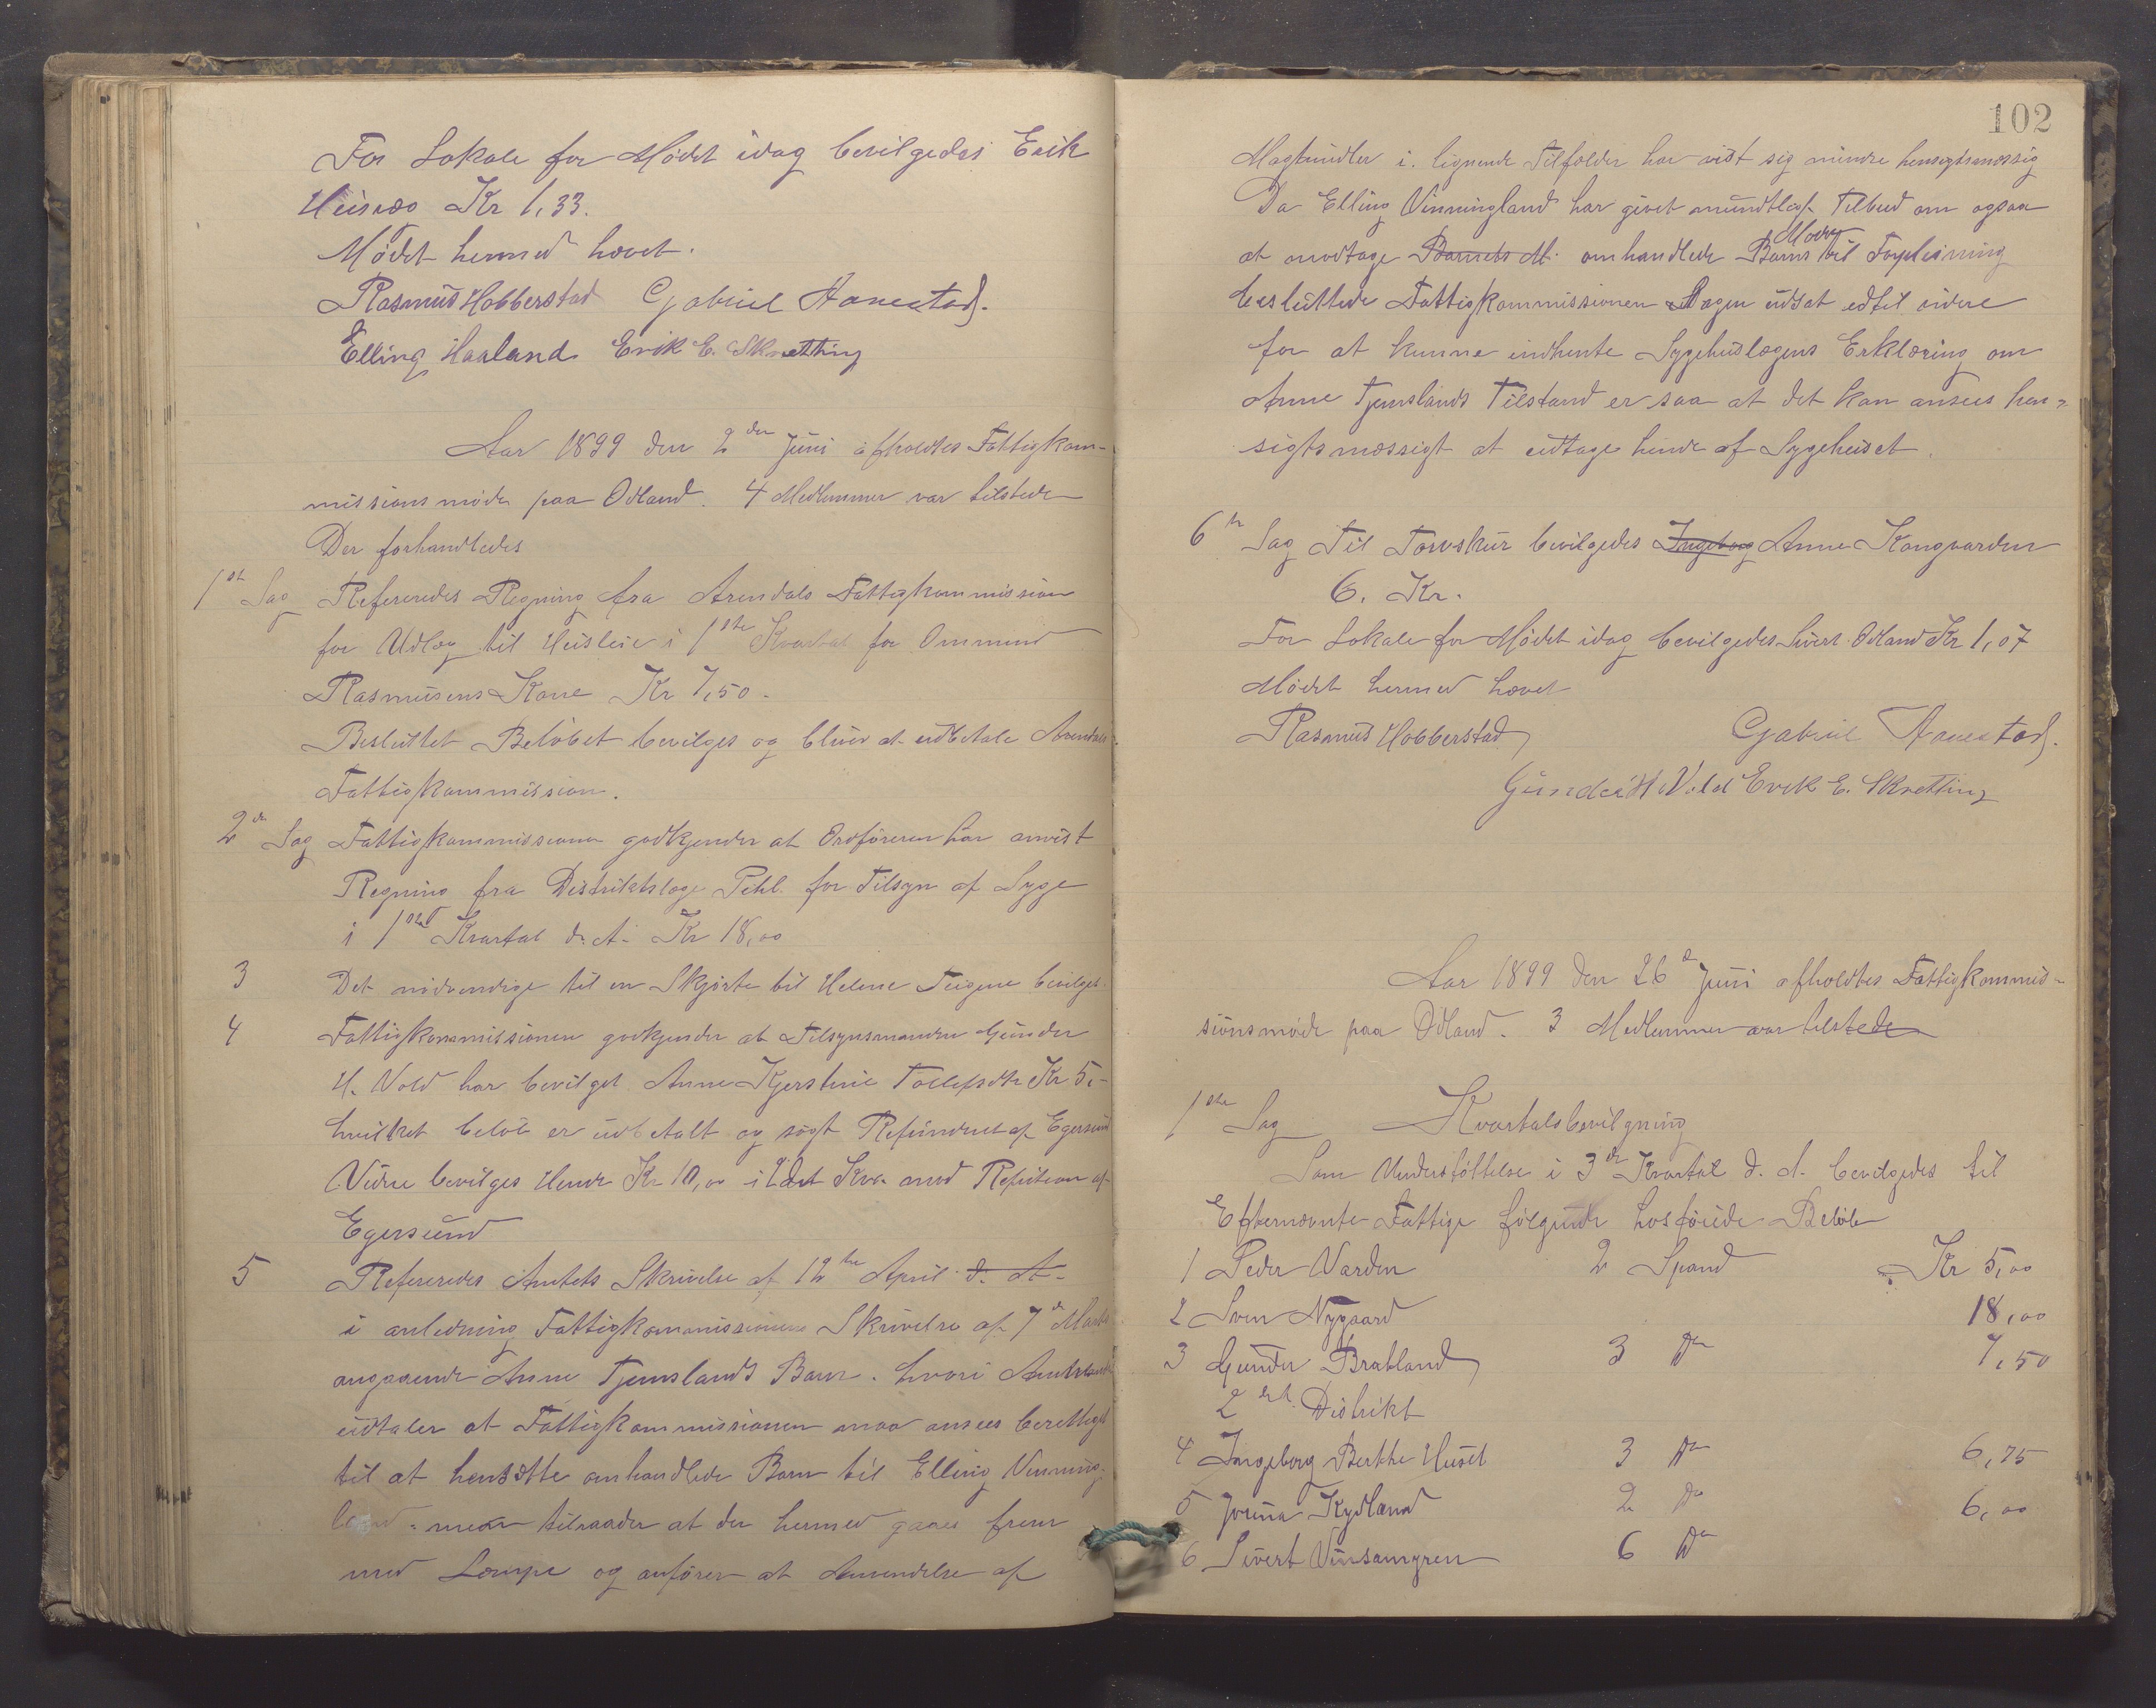 For Lokale for Mødet idag bevilgedes Erik
Kr 1,33.
Mødet hermed hævet.
Rasmus Hobberstad Gabriel Aanestad.
Elling Haaland Erik E. Skretting
Aar 1899 den 2den Juni afholdtes Fattigkom-
missionsmøde paa Odland. 4 Medlemmer var tilstede
Der forhandledes
1ste Sag Refereredes Regning fra Arendals Fattigkommission
for Udlæg til Husleie i 1ste Kvartal for Ommund
Rasmusens Kone Kr 7,50.
Besluttet Beløbet bevilges og bliver at udbetale Arendals
Fattigkommission.
2den Sag Fattigkommissionen godkjender at Ordføreren har anvist
Regning fra Distriktslæge Pehl for Tilsyn af Syge
i 1ste Kvartal d. A. Kr 18,00
3 Det nødvendige til en Skjørte til Helene Teigene bevilges
4 Fattigkommissionen godkjender at Tilsynsmanden Gunder
H. Vold har bevilget Anne Kjerstine Tollefsdtr Kr 5,-
hvilket beløb er udbetalt og søgt Refunderet af Egersund
Videre bevilges Hende Kr 10,00 i 2det Kva. mod Refusion af
Egersund
5 Refereredes Amtets Skrivelse af 12te April d. A.
i anledning Fattigkommissionens Skrivelse af 7de Marts
angaaende Anne Tjemslands Barn. hvori Amtmanden
udtaler at Fattigkommissionen maa ansees berettiget
til at hensætte omhandlede Barn til Elling Vinning-
land - men tilraader at der hermed gaaes frem
med Læmpe og anfører at Anvendelse af
102
Magtmidler i lignende Tilfælder har vist sig mindre hensigtsmæssig
Da Elling Vinningland har givet mundtligt Tilbud om ogsaa
at modtage Barnets M. omhandlede Barns Moder til Forpleining
besluttede Fattigkommissionen Sagen udsat indtil videre
for at kunne indhente Sygehuslægens Erklæring om
Anne Tjemslands Tilstand er saa at det kan ansees hen-
sigtsmæssigt at udtage hende af Sygehuset.
6te Sag Til Torvskur bevilgedes Ingeborg Anne Kongvarden
6. Kr.
For Lokale for Mødet idag bevilgedes Sivert Odland Kr 1,07
Mødet hermed hævet
Rasmus Hobberstad Gabriel Aanestad.
Gunder H. Vold Erik E. Skretting
Aar 1899 den 26de Juni afholdtes Fattigkommis-
sionsmøde paa Odland. 3 Medlemmer var tilstede
1ste Sag Kvartalsbevilgning
Som Understøttelse i 3de Kvartal d. A. bevilgedes til
Efternævnte Fattige følgende hosføiede Beløb
1 Peder Varden 2 Spand Kr 5,00
2 Sven Nygaard 18,00
3 Gunder Bratland 3 Do 7,50
2det Distrikt
4 Ingeborg Berthe Huset 3 Do 6,75
5 Jorina Kydland 2 Do 6,00
6 Sivert 6 Do